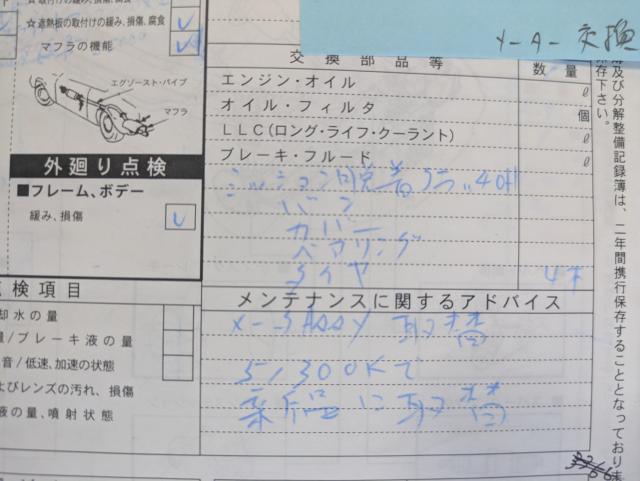 ☆遮熱板の取付けの緩み、損傷、腐食
マフラの機能
エグゾースト・パイプ
マフラ
外廻り点検
■フレーム、ボデー
緩み、損傷
点検項目
却水の量
量/ブレーキ液の量
音/低速、加速の状態
よびレンズの汚れ、損傷
液の量、噴射状態
メーター交換
交換部品等
数量
エンジン・オイル ℓ
オイル・フィルタ 個
LLC(ロング・ライフ・クーラント) ℓ
ブレーキ・フルード ℓ
ミッション脱着
バン
カバー
ベアリング
タイヤ 4本
メンテナンスに関するアドバイス
メータASSY 取替
51300Kで
新品に取替
及び分解整備記録簿は、二年間携行保存することとなっており
存下さい。